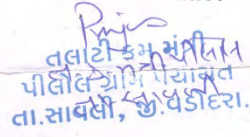 તલાટી કમ મંત્રી
પીલોલ ગ્રામ પંચાયત
તા.સાવલી, જી.વડોદરા.